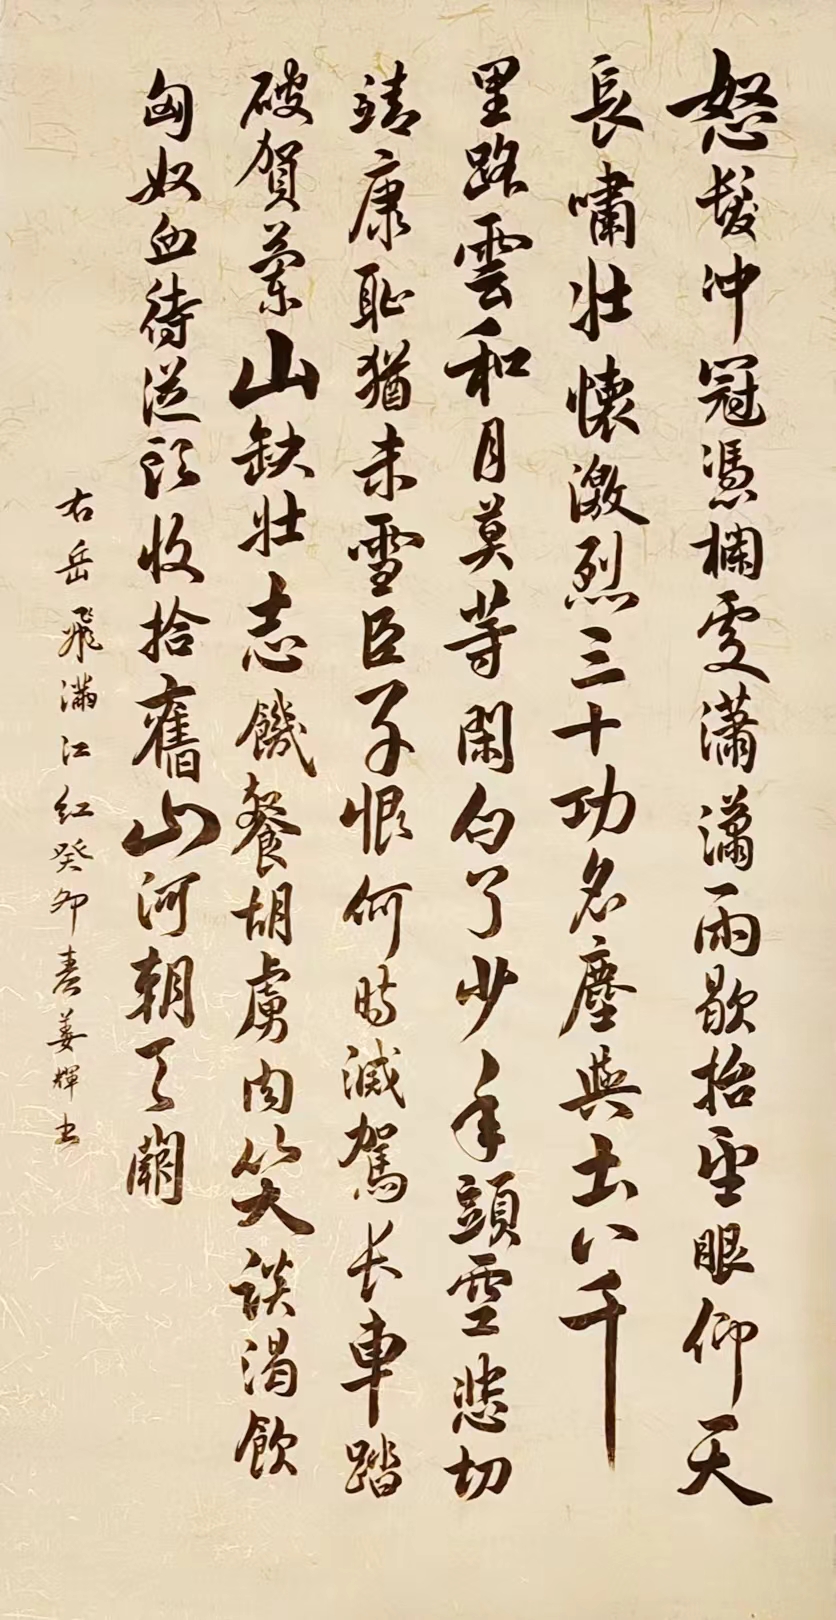 怒髮冲冠憑欄處瀟瀟雨歇抬望眼仰天
長嘯壯懷激烈三十功名塵與土八千
里路雲和月莫等閑白了少年頭空悲切
靖康恥猶未雪臣子恨何時滅駕长車踏
破賀蘭山缺壯志饑餐胡虜肉笑談渴飲
匈奴血待從頭收拾舊山河朝天闕
右岳飛滿江红癸卯春姜輝书